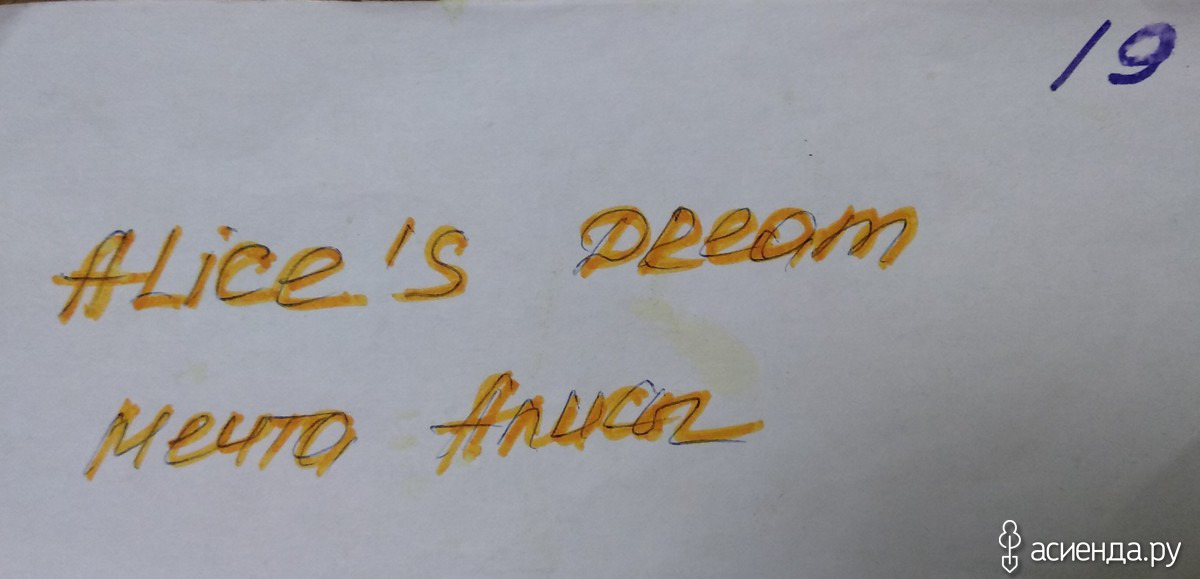 19
ALice's Dream
мечта Алисы
асиенда.ру